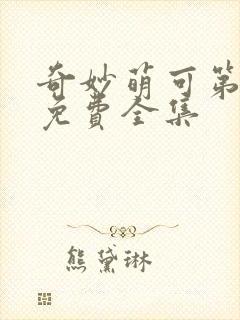 奇妙萌可第
免费全集
熊黛琳